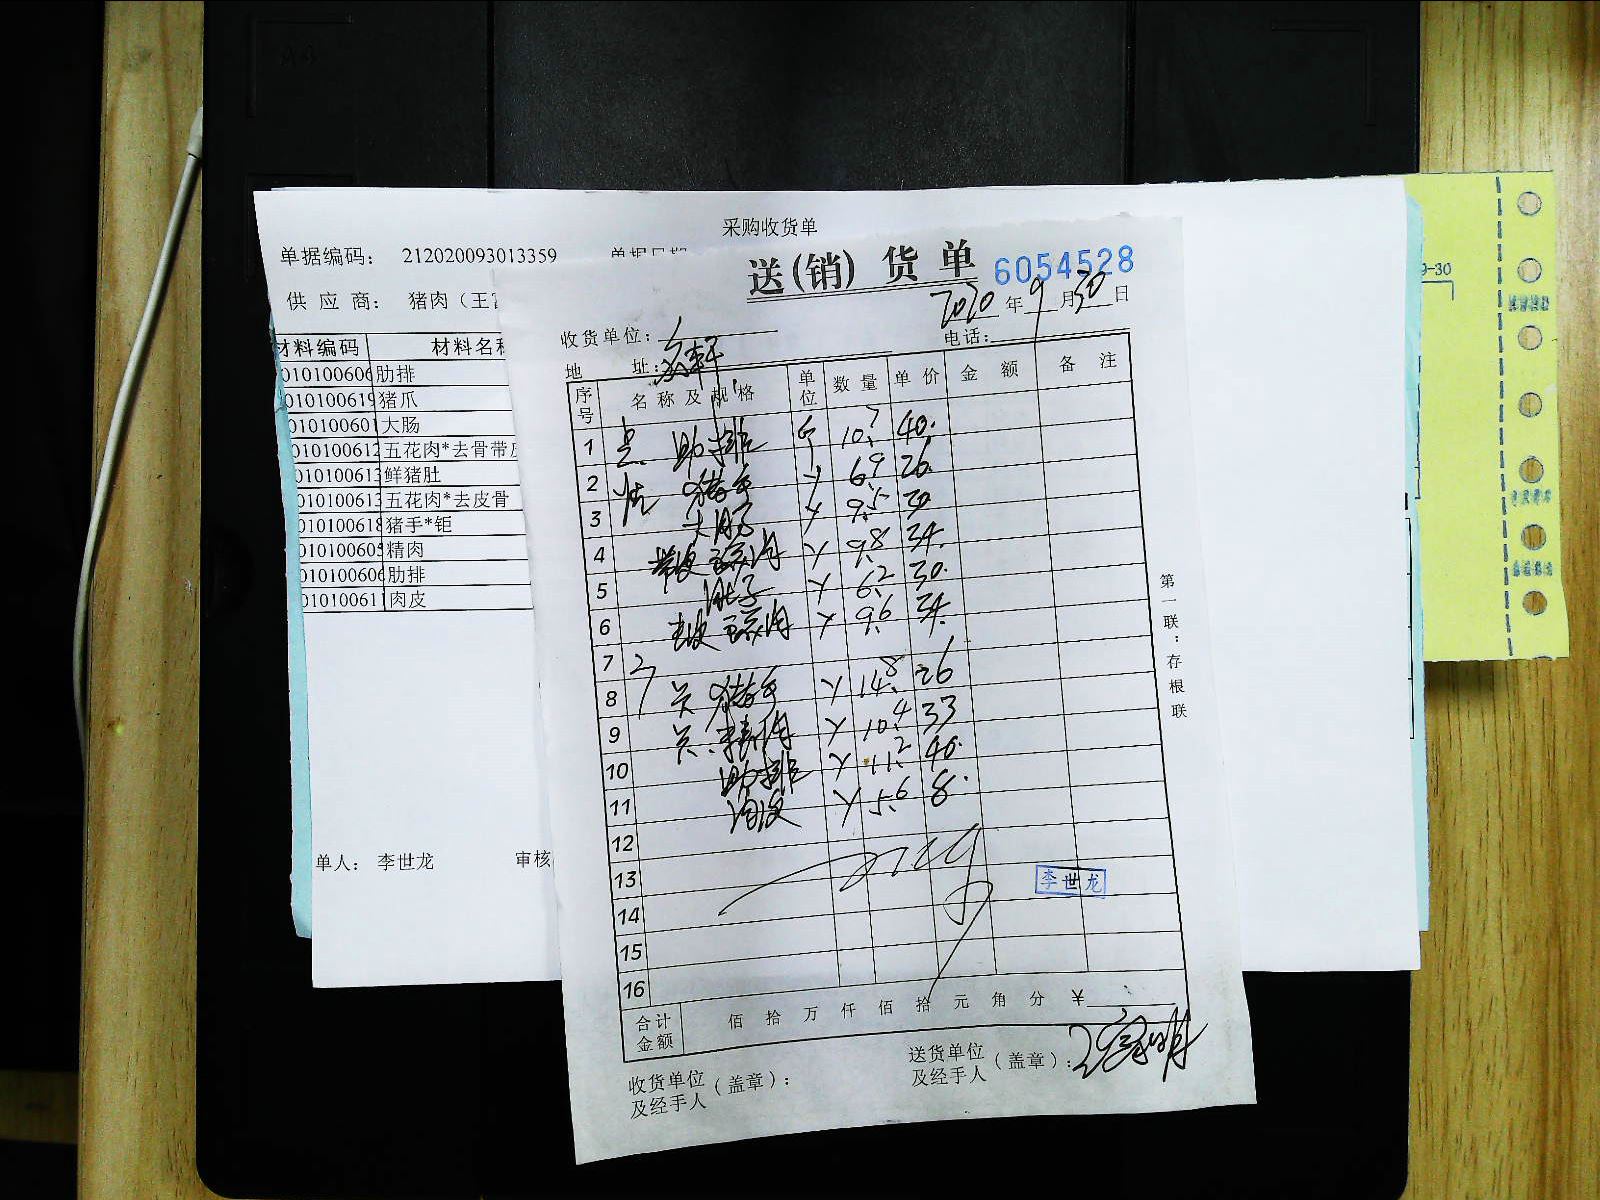 采购收货单
单据编码： 212020093013359 单据日期
供应商： 猪肉（王富
材料编码 材料名称
010100606 肋排
010100619 猪爪
010100601 大肠
010100612 五花肉*去骨带皮
010100613 鲜猪肚
010100613 五花肉*去皮骨
010100618 猪手*钜
010100605 精肉
010100606 肋排
010100611 肉皮
单人： 李世龙 审核
9-30
送(销)货单 6054528
2020年9月30日
收货单位：
电话：
地址：
序号 名称及规格 单位 数量 单价 金额 备注
1 肋排 10.7 40.
2 猪手 6.9 26.
3 大肠 9.5 30
4 带皮五花肉 9.8 34.
5 肚子 6.2 30.
6 去皮五花肉 9.6 34.
7
8 猪手 14.8 26
9 精肉 10.4 33
10 肋排 11.2 40.
11 肉皮 5.6 8.
12
13
李世龙
14
15
16
合计金额 佰拾万仟佰拾元角分 ¥
第一联：存根联
收货单位及经手人（盖章）：
送货单位及经手人（盖章）： 王富明